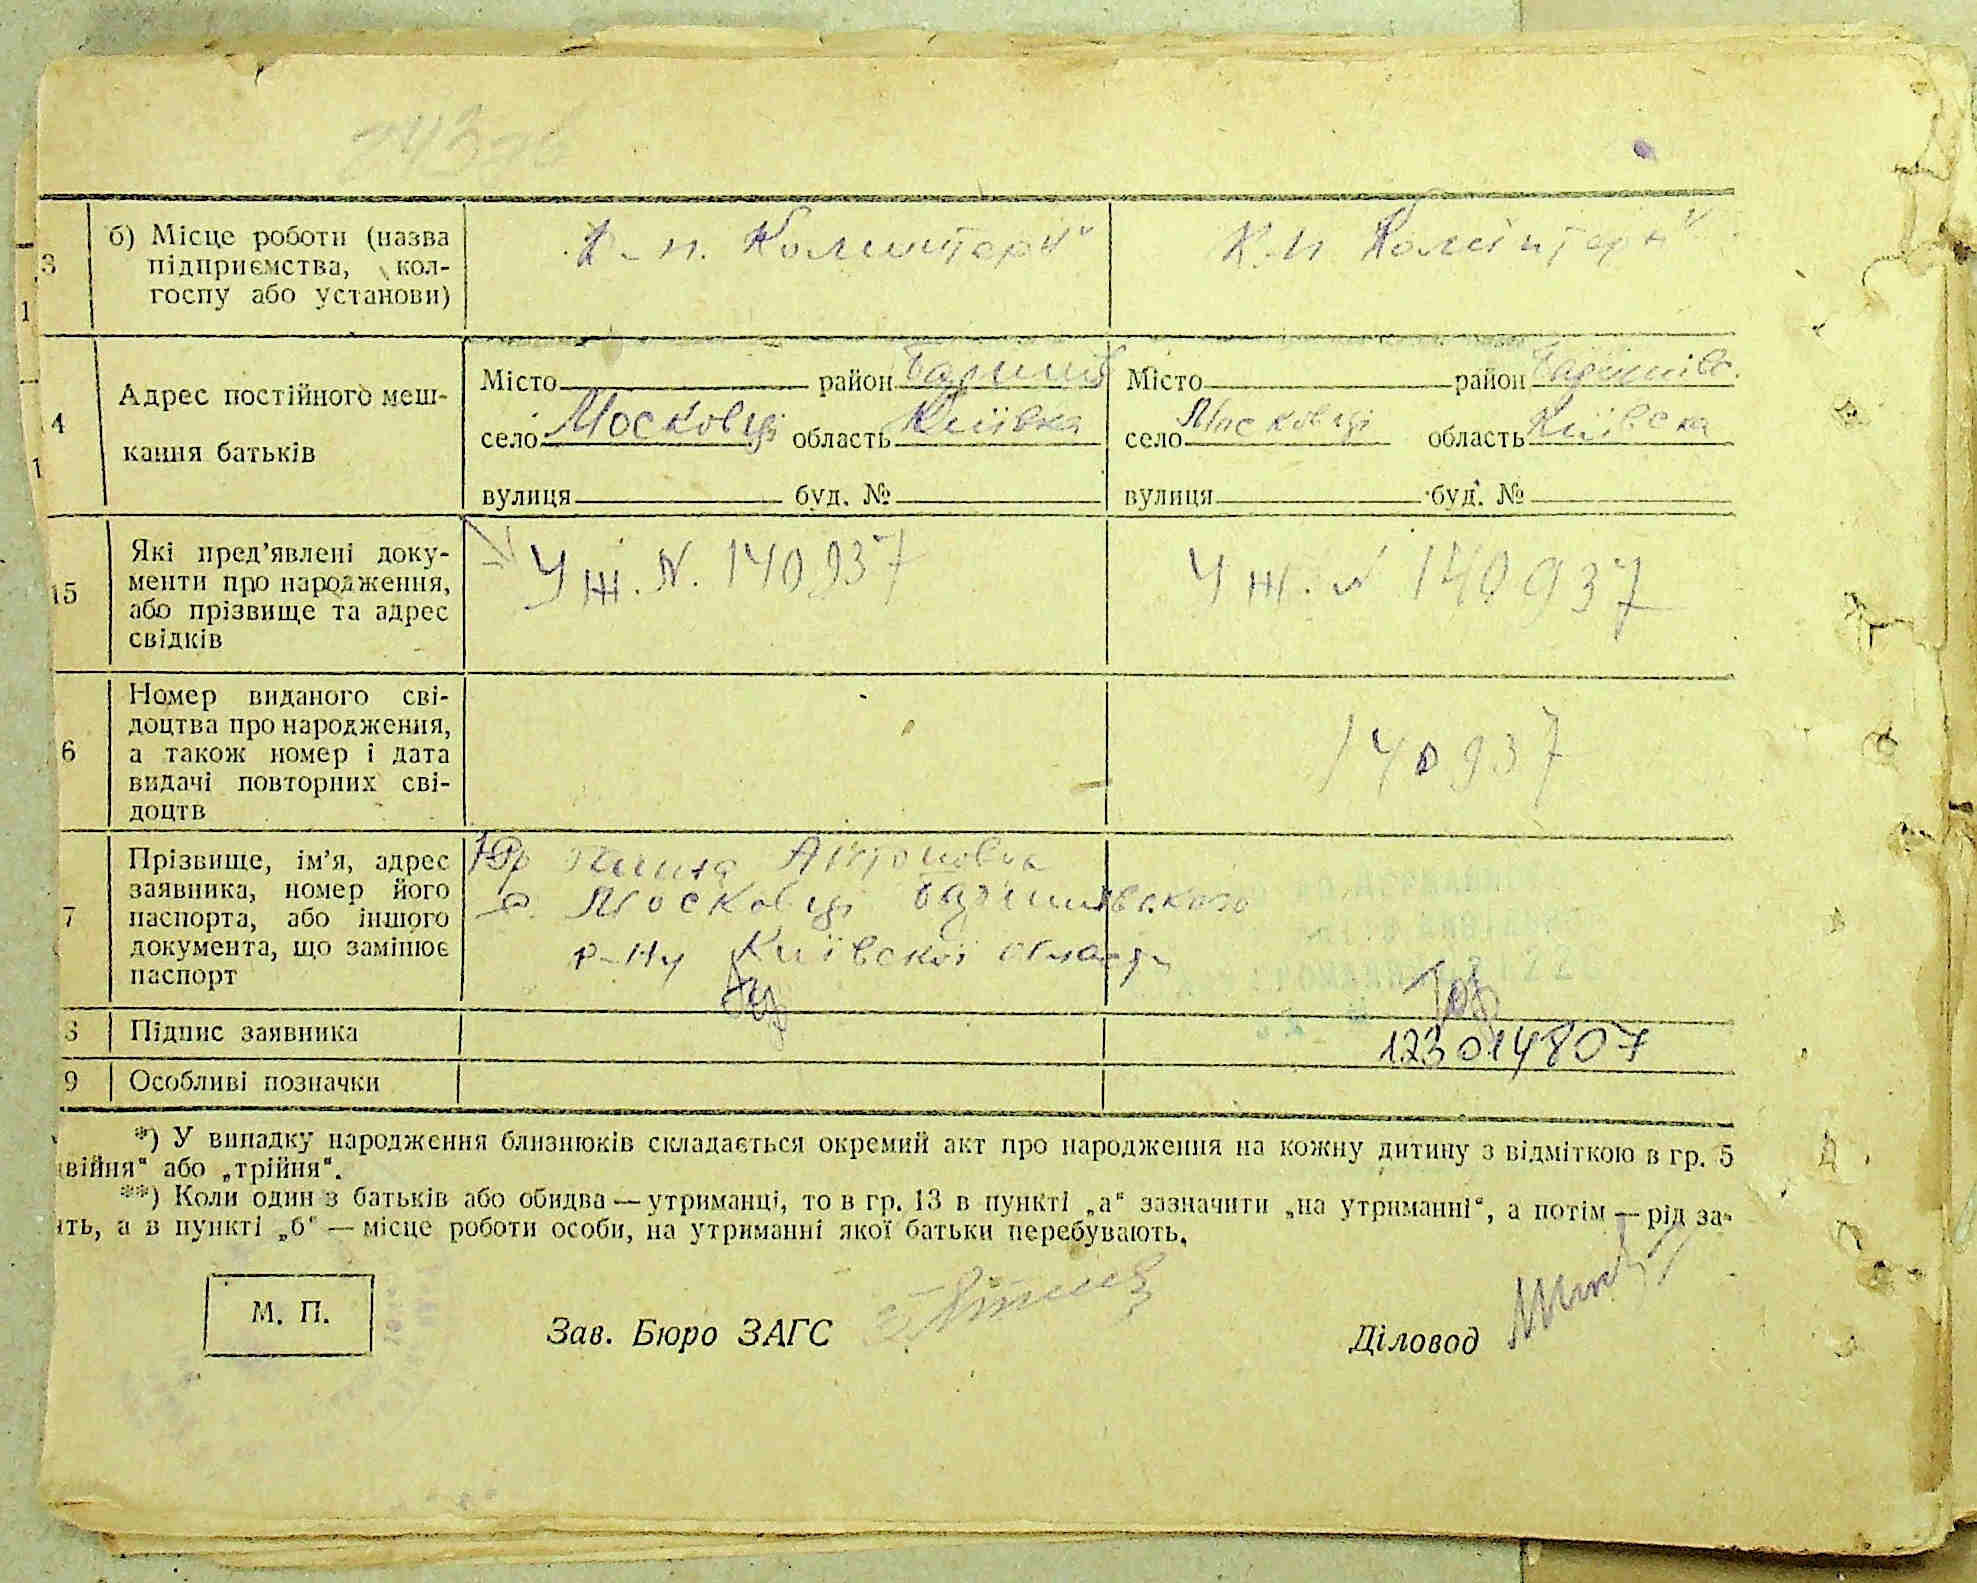 3
б) Місце роботи (назва
підприємства, кол-
госпу або установи)
К-п. Комінтерн"
К-п Комінтерн"
4
Адрес постійного меш-
кання батьків
Місто район Баришів
село Московці область Київка
вулиця буд. №
Місто район Баришівс.
село Московці область Київска
вулиця буд. №
15
Які пред'явлені доку-
менти про народження,
або прізвище та адрес
свідків
У ЯЖ. N. 140937
У ЯЖ. № 140937
6
Номер виданого сві-
доцтва про народження,
а також номер і дата
видачі повторних сві-
доцтв
140937
7
Прізвище, ім'я, адрес
заявника, номер його
паспорта, або іншого
документа, що замінює
паспорт
Антоновна
с. Московці Баришівского
р-ну Київскої області
8
Підпис заявника
123014807
9
Особливі позначки
*) У випадку народження близнюків складається окремий акт про народження на кожну дитину з відміткою в гр. 5
війня" або „трійня".
**) Коли один з батьків або обидва — утриманці, то в гр. 13 в пункті „а" зазначити „на утриманні", а потім — рід за-
ять, а в пункті „б" — місце роботи особи, на утриманні якої батьки перебувають.
М. П.
Зав. Бюро ЗАГС
Діловод